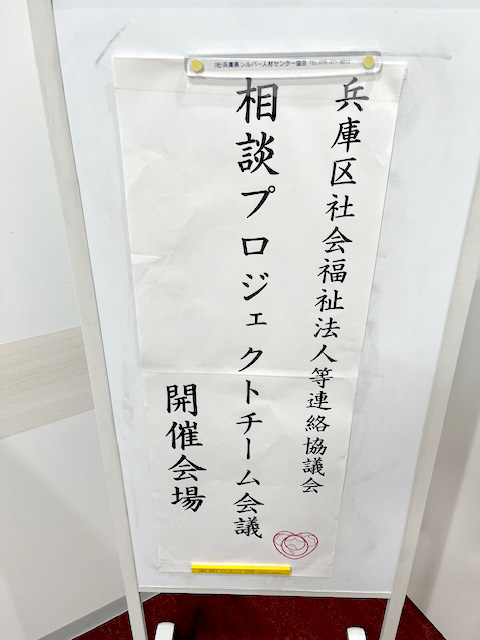 (社)兵庫県シルバー人材センター協会
兵庫区社会福祉法人等連絡協議会
相談プロジェクトチーム会議
開催会場